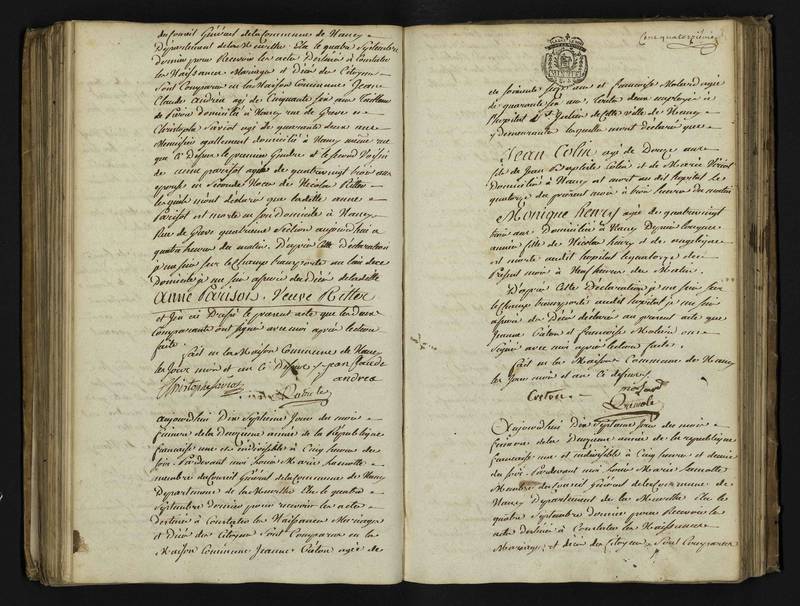 du Conseil Général de la Commune de Nancy
Département de la Meurthe. Elu le quatre Septembre
dernier pour Recevoir les actes Destinés à Constater
les Naissances Mariages et Décès des Citoyens
sont Comparus en la Maison Commune Jean
Claude andrea agé de Cinquante six ans Tailleur
de Pierre domicilié à Nancy rue de Greve et
Christophe Saviot agé de quarante deux ans
Menuisier egallement domicilié à Nancy même rue
que Ci Dessus le premier Gendre et le second Voisin
de anne parisot agée de quatre vingt trois ans
epouse en secondes Noces de Nicolas Ritter
lesquels m'ont déclaré que ladite anne
Parisot est morte en son domicile à Nancy
Rue de Greve quatrieme Section aujourd'hui a
quatre heures du matin. D'après cette Déclaration
je me suis sur le Champ transporté au lieu dece
Domicile je me suis assuré du Décès de ladite
anne Parisot. Veuve Ritter
et j'en ai Dressé le présent acte que les deux
comparants ont signé avec moi après lecture
faite.
Fait en la Maison Commune de Nancy
les Jour mois et an Ci Dessus jean Claude
Christophe Saviot andrea
aujourd'hui Dix Septieme Jour du mois
frimaire de la Deuxieme année de la République
francaise une et indivisible à Cinq heures du
soir. Pardevant moi Louis Marie Lamotte
membre du Conseil Général de la Commune de Nancy
Departement de la Meurthe Elu le quatre
Septembre dernier pour recevoir les actes
destinés à Constater les Naissances Mariages
et Décès des Citoyens Sont Comparus en la
Maison Commune Jeanne Creton agée de
Cent quatorzieme
de soixante sept ans et francoise Molard agée
de quarante six ans, toutes deux employées à
l'hopital St Julien de Cette Ville de Nancy
y demeurantes lesquelles m'ont déclaré que
Jean Colin agé de Douze ans
fils de Jean Baptiste Colin et de Marie
Domicilié à Nancy est mort audit hopital le
quatorze du présent mois à trois heures du matin
Monique henry agée de quatre vingt
trois ans Domiciliée à Nancy Depuis
année fille de Nicolas henry et de
est morte audit hopital le quatorze du
Présent mois à Neuf heures du Matin.
D'après Cette Déclaration je me suis sur
le Champ transporté audit hopital je me suis
assuré des Décès déclarés au présent acte que
Jeanne Creton et francoise Molard ont
Signé avec moi après lecture faite.
Fait en la Maison Commune de Nancy
les Jour mois et an Ci dessus.
Creton molard
Aujourd'hui Dix Septieme Jour du mois
frimaire de la Deuxieme année de la republique
francaise une et indivisible à Cinq heures et demie
du soir. Pardevant moi Louis Marie Lamotte
Membre du Conseil Général de la Commune de
Nancy Département de la Meurthe Elu le
quatre Septembre dernier pour Recevoir les
actes destinés à Constater les Naissances
Mariages et décès des Citoyens Sont Comparus